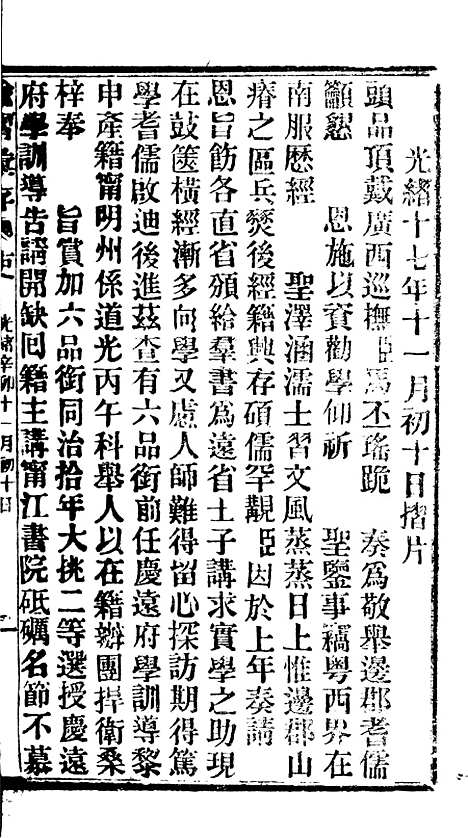 光緒十七年十一月初十日摺片
頭品頂戴廣西巡撫臣馬丕瑤跪　奏爲敬舉邊郡耆儒
籲懇　恩施以資勸學仰祈　聖鑒事竊粵西界在
南服歷經　聖澤涵濡士習文風蒸蒸日上惟邊郡山
瘠之區兵燹後經籍興存碩儒罕覯臣因於上年奏請
恩旨飭各直省頒給羣書爲遠省士子講求實學之助現
在鼓篋橫經漸多向學又慮人師難得留心探訪期得篤
學耆儒啟迪後進茲查有六品銜前任慶遠府學訓導黎
申產籍甯明州係道光丙午科舉人以在籍辦團捍衛桑
梓奉　旨賞加六品銜同治拾年大挑二等選授慶遠
府學訓導告請開缺回籍主講甯江書院砥礪名節不慕
光緒辛卯十一月初十日
一